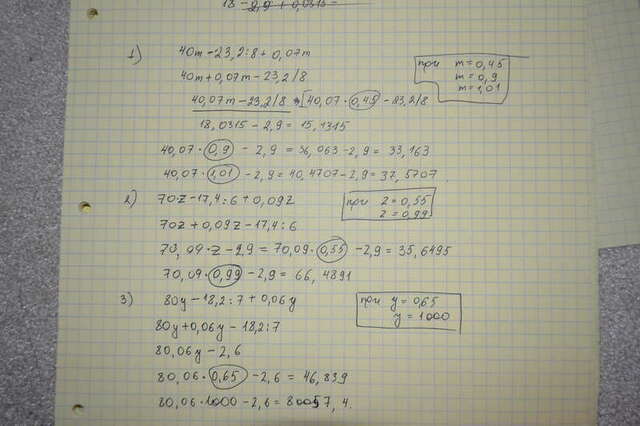 18 - 2,9 + 0,0315 =
1) 40m - 23,2:8 + 0,07m
при m = 0,45
m = 0,9
m = 1,01
40m + 0,07m - 23,2/8
40,07m - 23,2/8 [40,07 · 0,45 - 23,2/8
18,0315 - 2,9 = 15,1315
40,07 · 0,9 - 2,9 = 36,063 - 2,9 = 33,163
40,07 · 1,01 - 2,9 = 40,4707 - 2,9 = 37,5707
2) 70z - 17,4:6 + 0,09z
при z = 0,55
z = 0,99
70z + 0,09z - 17,4:6
70,09 · z - 2,9 = 70,09 · 0,55 - 2,9 = 35,6495
70,09 · 0,99 - 2,9 = 66,4891
3) 80y - 18,2:7 + 0,06y
при y = 0,65
y = 1000
80y + 0,06y - 18,2:7
80,06y - 2,6
80,06 · 0,65 - 2,6 = 46,839
80,06 · 1000 - 2,6 = 80057,4.